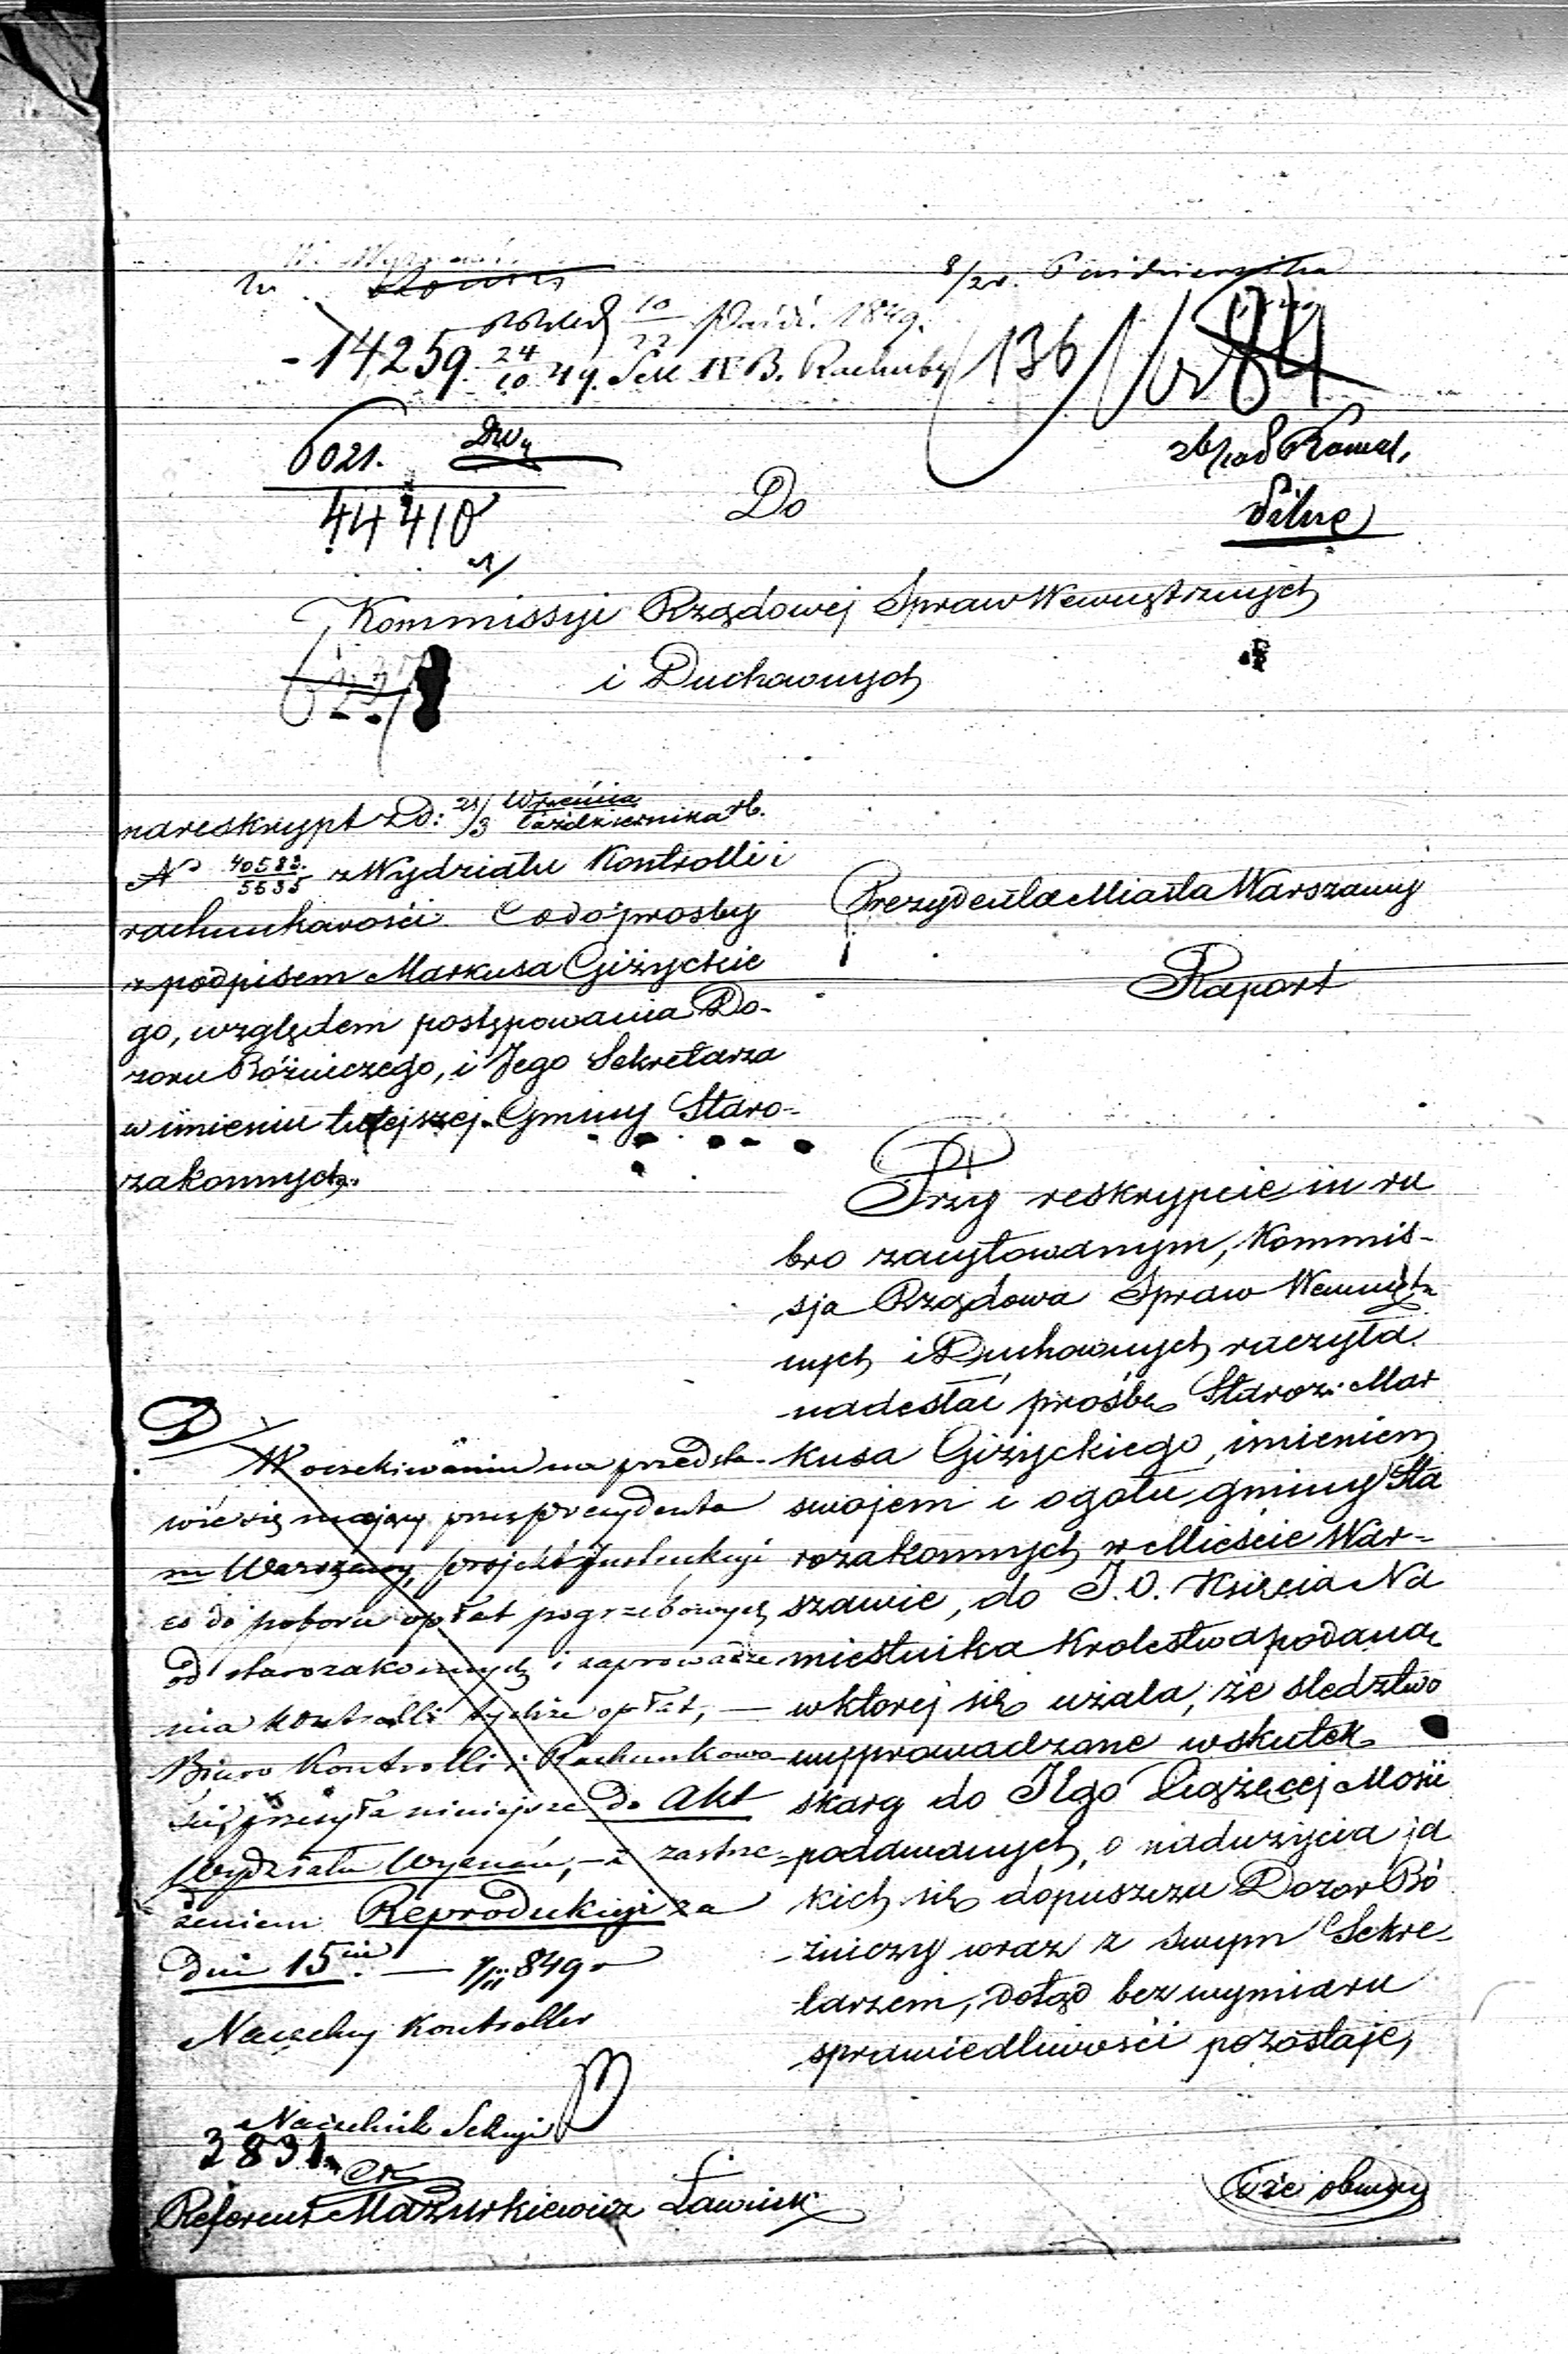 8/20. Października
10/22 Paźdź. 1849.
14259 24/10 49. Sek IV B. Rachuby 136
6021.
44410
Pilne
Do
Kommissyi Rządowej Spraw Wewnętrznych
i Duchownych
na reskrypt z D: 21/3 Września/Października rb.
No 40582/5535 z Wydziału Kontrolli i
rachunkowości. Co do prośby
z podpisem Markusa Giżyckie
go, względem postępowania Do-
zoru Bóżniczego, i Jego Sekretarza
w imieniu tutejszej Gminy Staro-
zakonnych.
Prezydenta Miasta Warszawy
Raport
Przy reskrypcie in ru
bro zacytowanym, Kommis-
sja Rządowa Spraw Wewnętrz
nych i Duchownych raczyła
nadesłać prośbę Staroz: Mar
kusa Giżyckiego, imieniem
swojem i ogołu gminy Sta
rozakonnych w Mieście War-
szawie, do J.O. Księcia Na
miestnika Krolestwa podaną
w ktorej się użala, że sledztwo
wyprowadzone wskutek
skarg do Jego Książęcej Mości
poddawanych, o nadużycia ja
kich się dopuszcza Dozor Bó
żniczy wraz z swym Sekre
tarzem, dotąd bez wymiaru
sprawiedliwości pozostaje,
W oczekiwaniu na przedsta-
wić się mający przez prezydenta
m Warszawy, projekt Instrukcyi
co do poboru opłat pogrzebowych
od starozakonnych i zaprowadze
nia kontrolli tychże opłat, —
Biuro Kontrolli i Rachunkowo
ści, przesyła niniejsze do Akt
Wydziału Wyznań, — z zastrze-
żeniem Reprodukcyi za
dni 15
Naczelny Kontroller
Naczelnik Sekcyi
2831.
Referent Mazurkiewicz Ławnik